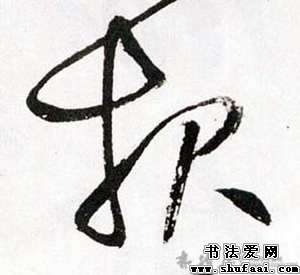 报
书法爱网
www.shufaai.com